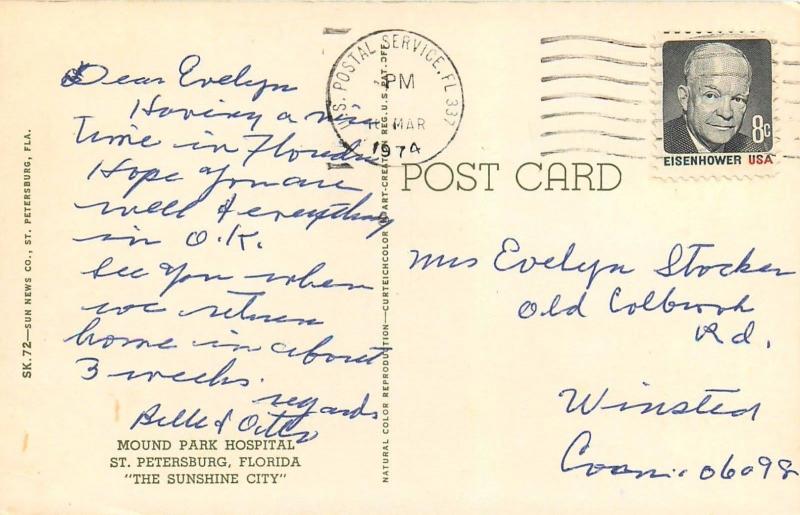 Dear Evelyn
Having a nice
time in Florida
Hope you are
well & everything
in O.K.
See you when
we return
home in about
3 weeks.
regards
Belle & Otto
MOUND PARK HOSPITAL
ST. PETERSBURG, FLORIDA
"THE SUNSHINE CITY"
SK.72—SUN NEWS CO., ST. PETERSBURG, FLA.
NATURAL COLOR REPRODUCTION—CURTEICHCOLOR ART-CREATION REG. U.S. PAT. OFF.
U.S. POSTAL SERVICE, FL 337
PM
MAR
1974
8c
EISENHOWER USA
POST CARD
Mrs Evelyn Stocker
Old Colbrook
Rd.
Winsted
Conn. 06098